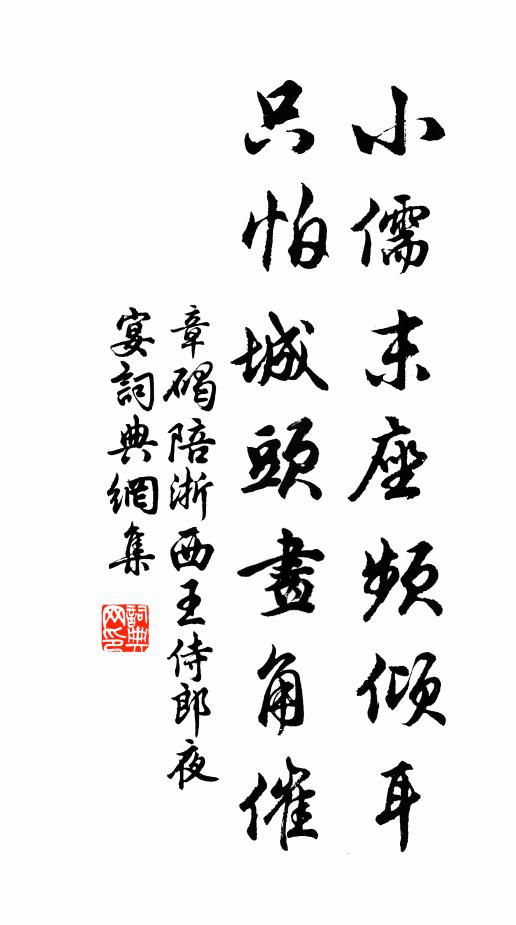 小儒末座頻傾耳
只怕城頭畫角催
章碣陪浙西王侍郎夜
宴詞典網集
詞典
网印